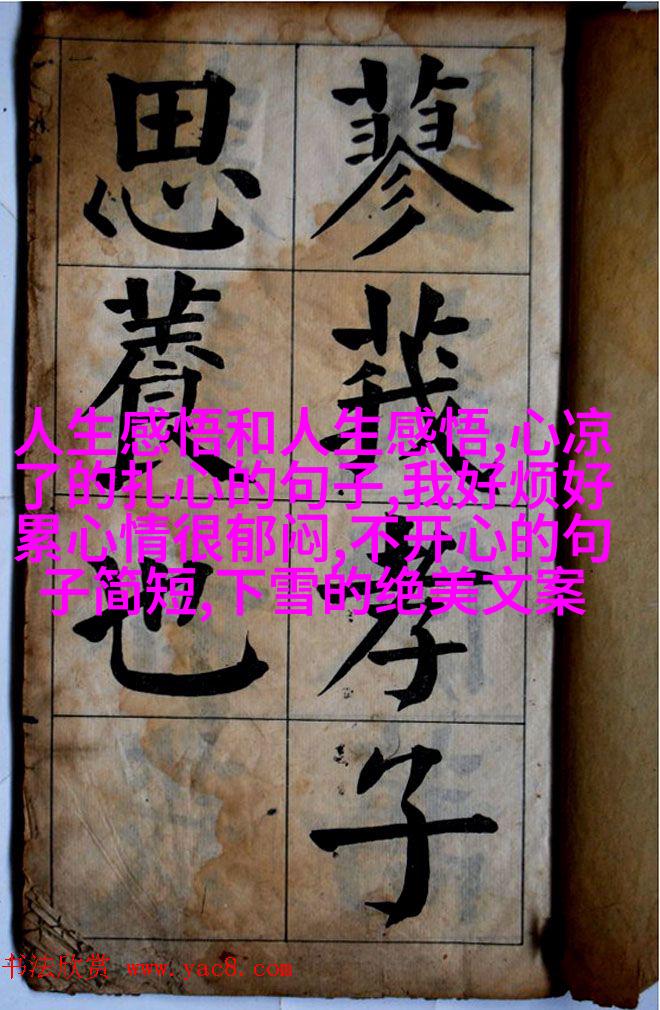 蓼莪孝子
思養也
人生感悟和人生感悟,心凉
了的扎心的句子,我好烦好
累心情很郁闷,不开心的句
子简短,下雪的绝美文案
书法欣赏 www.yac8.com